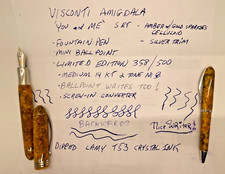 VISCONTI AMIGDALA
"YOU AND ME" SET - AMBER & GOLD SPARKLES CELLULOID
- FOUNTAIN PEN - SILVER TRIM
- MINI BALLPOINT
- LIMITED EDITION 358/500
- MEDIUM 14 KT 2 TONE NIB
- BALLPOINT WRITES TOO!
- SCREW-IN CONVERTER
BACKWARDS
NICE WRITER!
DIPPED LAMY T53 CRYSTAL INK